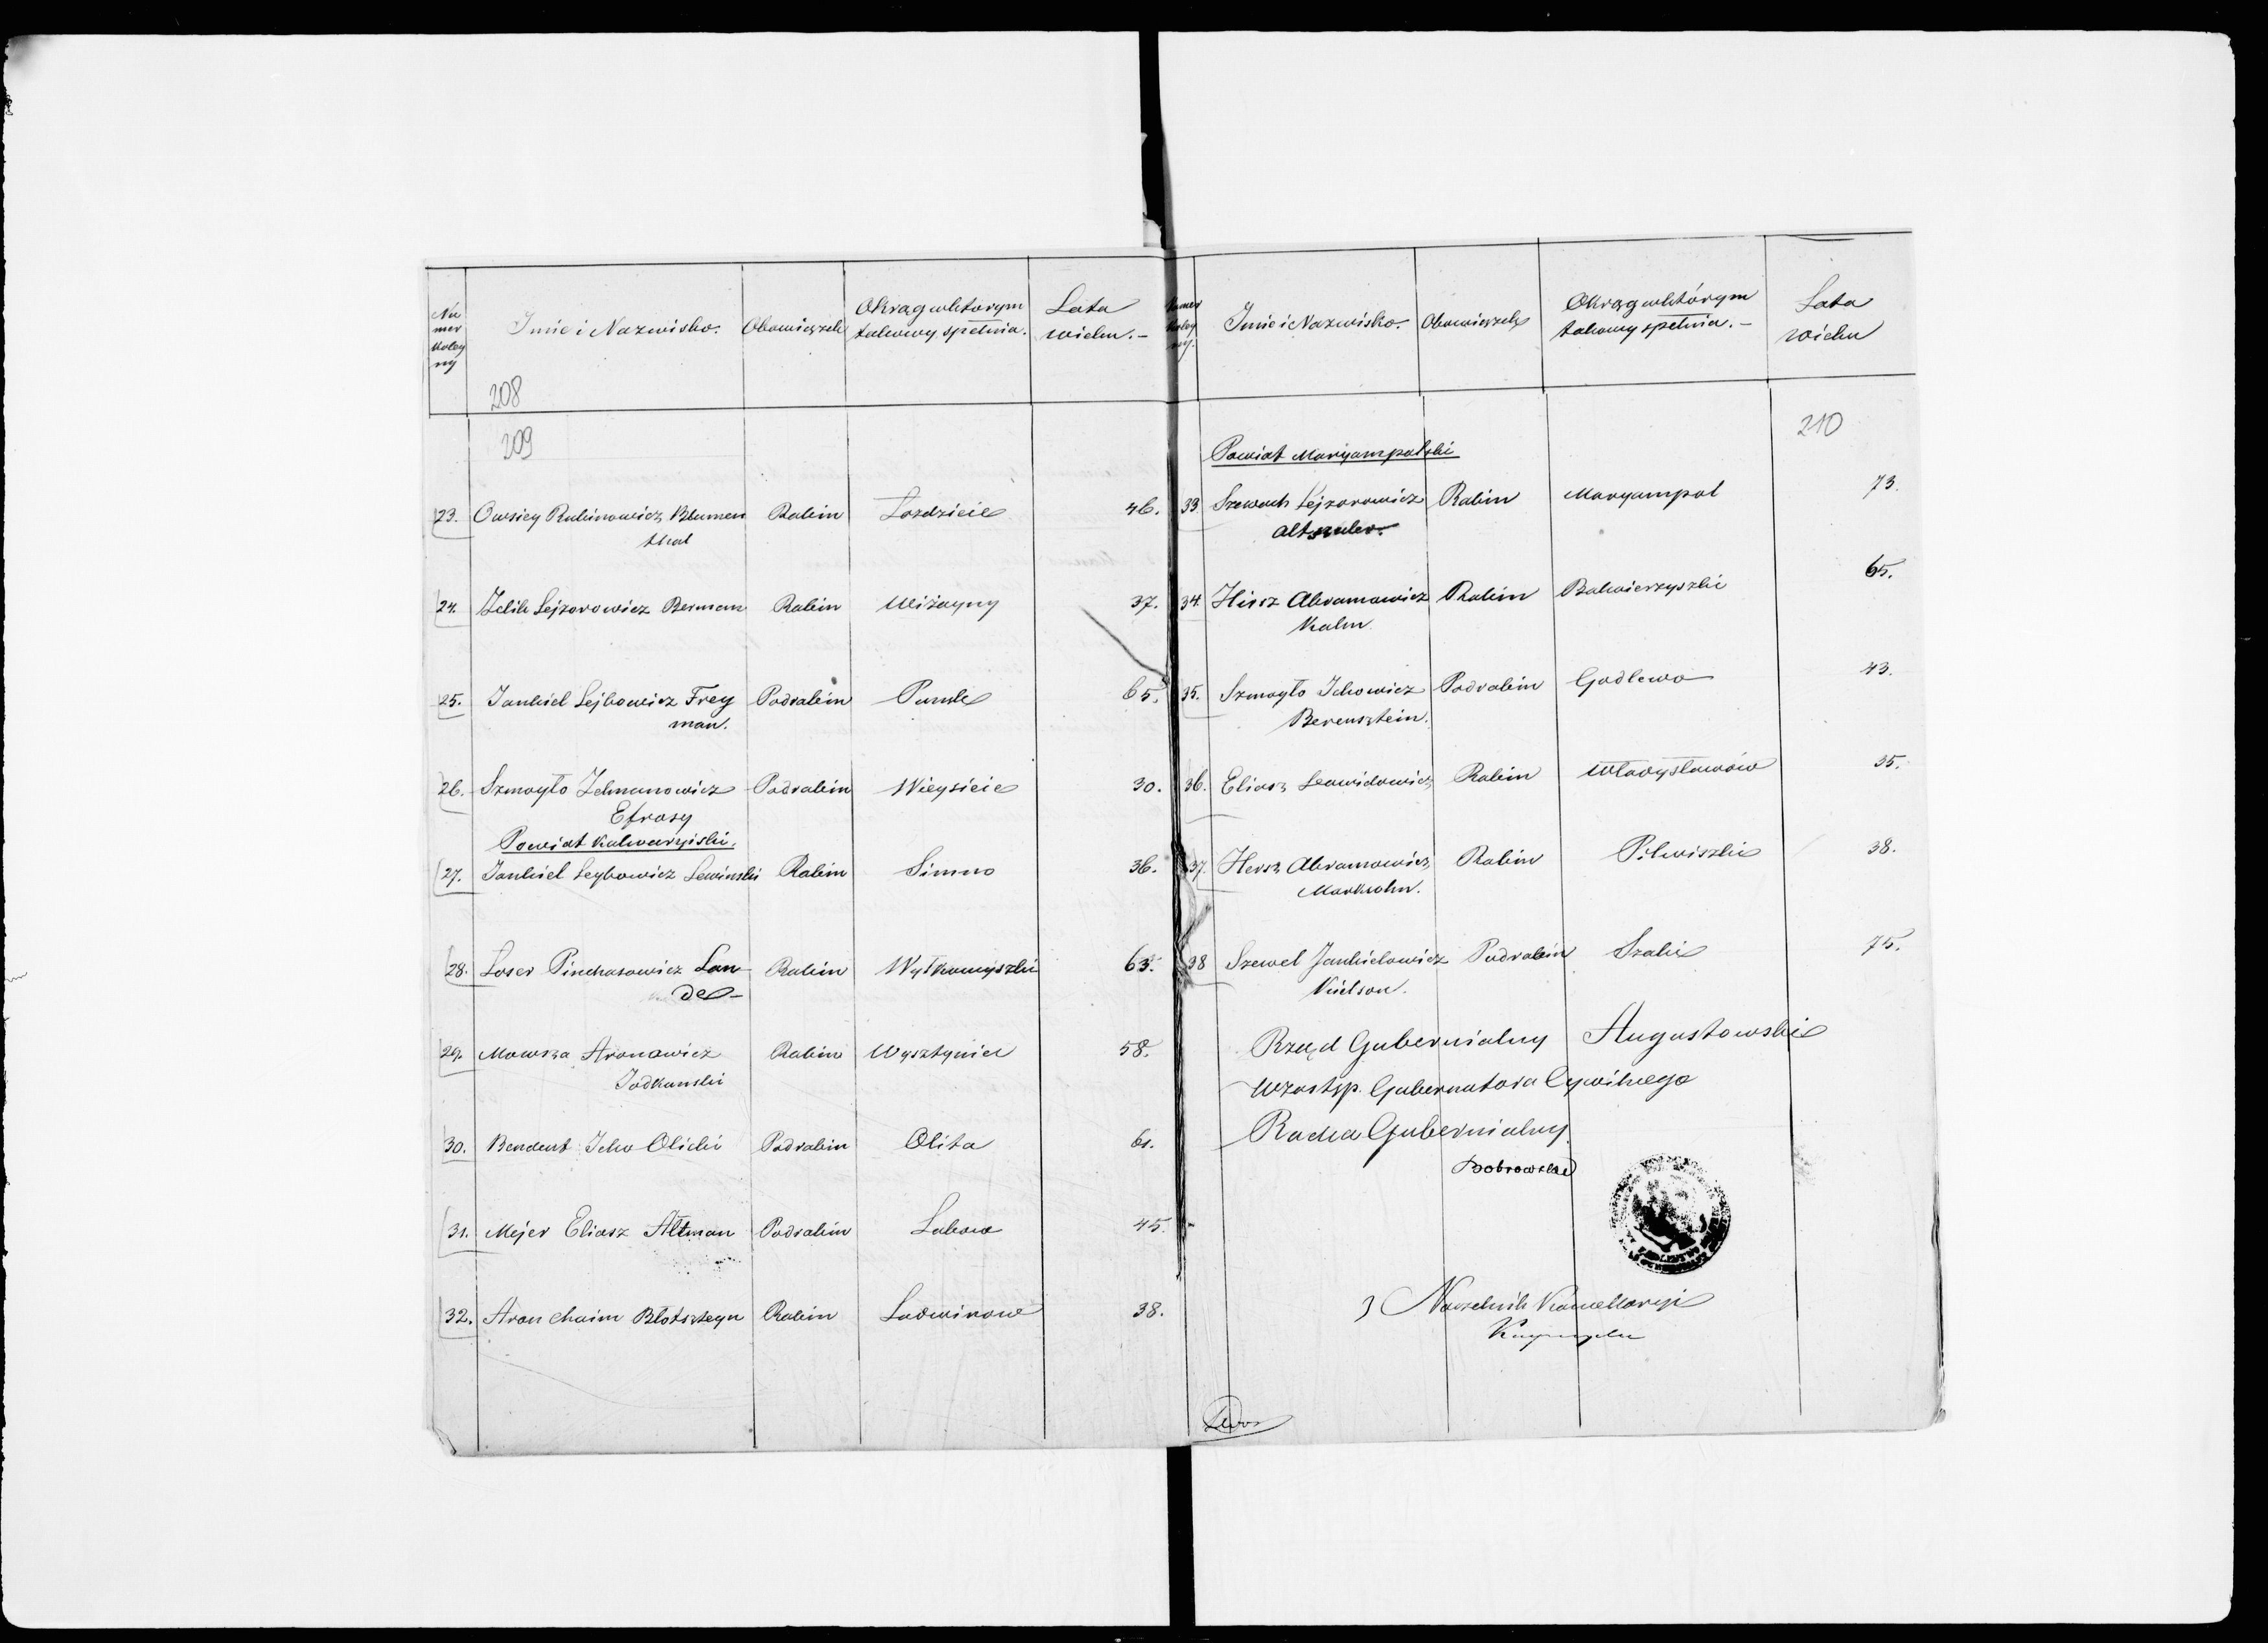 Numer koleyny | Imie i Nazwisko. | Obowiązek | Okrąg w którym takowy spełnia. | Lata wieku.-
208
209
23. Owsiey Rubinowicz Blumen Rabin Łoździeie 46.
thal
24. Zelik Lejzorowicz Berman Rabin Wiżayny 37.
25. Jankiel Lejbowicz Frey Podrabin Punsk 65.
man.
26. Szmoyło Zelmanowicz Podrabin Wieysieie 30.
Efrosy
Powiat Kalwaryiski.
27. Jankiel Leybowicz Lewinski Rabin Simno 36.
28. Loser Pinchasowicz Lan Rabin Wyłkowyszki 63.
de-
29. Mowsza Aronowicz Rabin Wysztyniec 58.
Jodkunski
30. Bendent Icko Olicki Podrabin Olita 61.
31. Mejer Eliasz Altman Podrabin 45.
32. Aron Chaim Blotszteyn Rabin Ludwinow 38.
Numer koleyny. | Imie i Nazwisko. | Obowiązek | Okrąg w którym takowy spełnia.- | Lata wieku
210
Powiat Maryampolski
33 Szewach Lejzorowicz Rabin Maryampol 73.
Altszuler.
34. Hirsz Abramowicz Rabin Balwierzyszki 65.
Kahn
35. Szmoyło Ickowicz Podrabin Godlewo 43.
Berensztein.
36. Eliasz Dawidowicz Rabin Władysławów 35.
37. Hersz Abramowicz Rabin Pilwiszki 38.
Markwohn.
38 Szewel Jankielowicz Podrabin Szaki 75.
Kielson.
Rząd Gubernialny Augustowski
W zastęp. Gubernatora Cywilnego
Radca Gubernialny
Dobrowolski
Naczelnik Kancellaryi